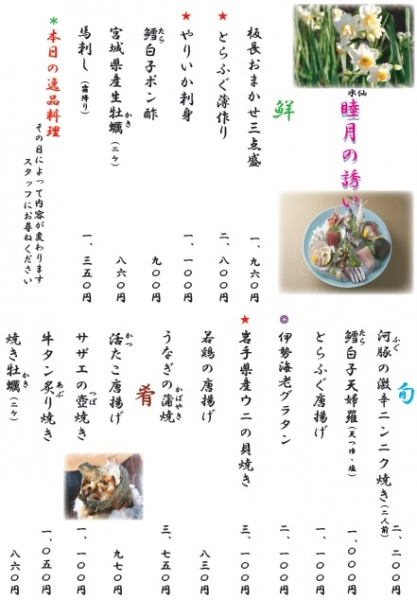 水仙
睦月の誘い
鮮
板長おまかせ三点盛 一、九六〇円
★とらふぐ薄作り 二、八〇〇円
★やりいか刺身 一、一〇〇円
鱈白子ポン酢 九〇〇円
たら
宮城県産生牡蠣(二ケ) 八六〇円
かき
馬刺し(霜降り) 一、三五〇円
*本日の逸品料理
その日によって内容が変わります
スタッフにお尋ねください
旬
河豚の激辛ニンニク焼き(二人前) 二、二〇〇円
ふぐ
鱈白子天婦羅(天つゆ・塩) 一、〇〇〇円
たら
とらふぐ唐揚げ 一、一〇〇円
◎伊勢海老グラタン 二、一〇〇円
★岩手県産ウニの貝焼き 三、〇〇〇円
若鶏の唐揚げ 八三〇円
うなぎの蒲焼 三、七五〇円
かばやき
肴
活たこ唐揚げ 九七〇円
かつ
サザエの壺焼き 一、一〇〇円
つぼ
牛タン炙り焼き 一、〇五〇円
あぶ
焼き牡蠣(二ケ) 八六〇円
かき